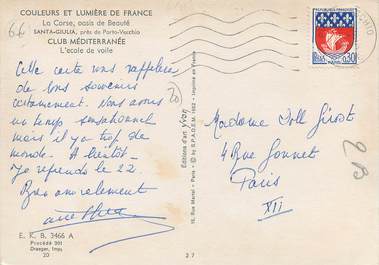 66
COULEURS ET LUMIÈRE DE FRANCE
La Corse, oasis de Beauté
SANTA-GIULIA, près de Porto-Vecchio
CLUB MÉDITERRANÉE
L'école de voile
Cette carte vous rappellera
de bons souvenirs
certainement. Nous avons
un temps sensationnel
mais il y a trop de
monde. A bientôt
Je reprends le 22
Bien amicalement
E. K. B. 3466 A
Procédé 301
Draeger, Imp.
20
20
Editions d'art Yvon
15, Rue Martel - Paris - © by S.P.A.D.E.M. 1962 - Imprimé en France
27
RÉPUBLIQUE FRANÇAISE
0,30
Madame Doll Girost
4 Rue Gonnet
Paris
XII